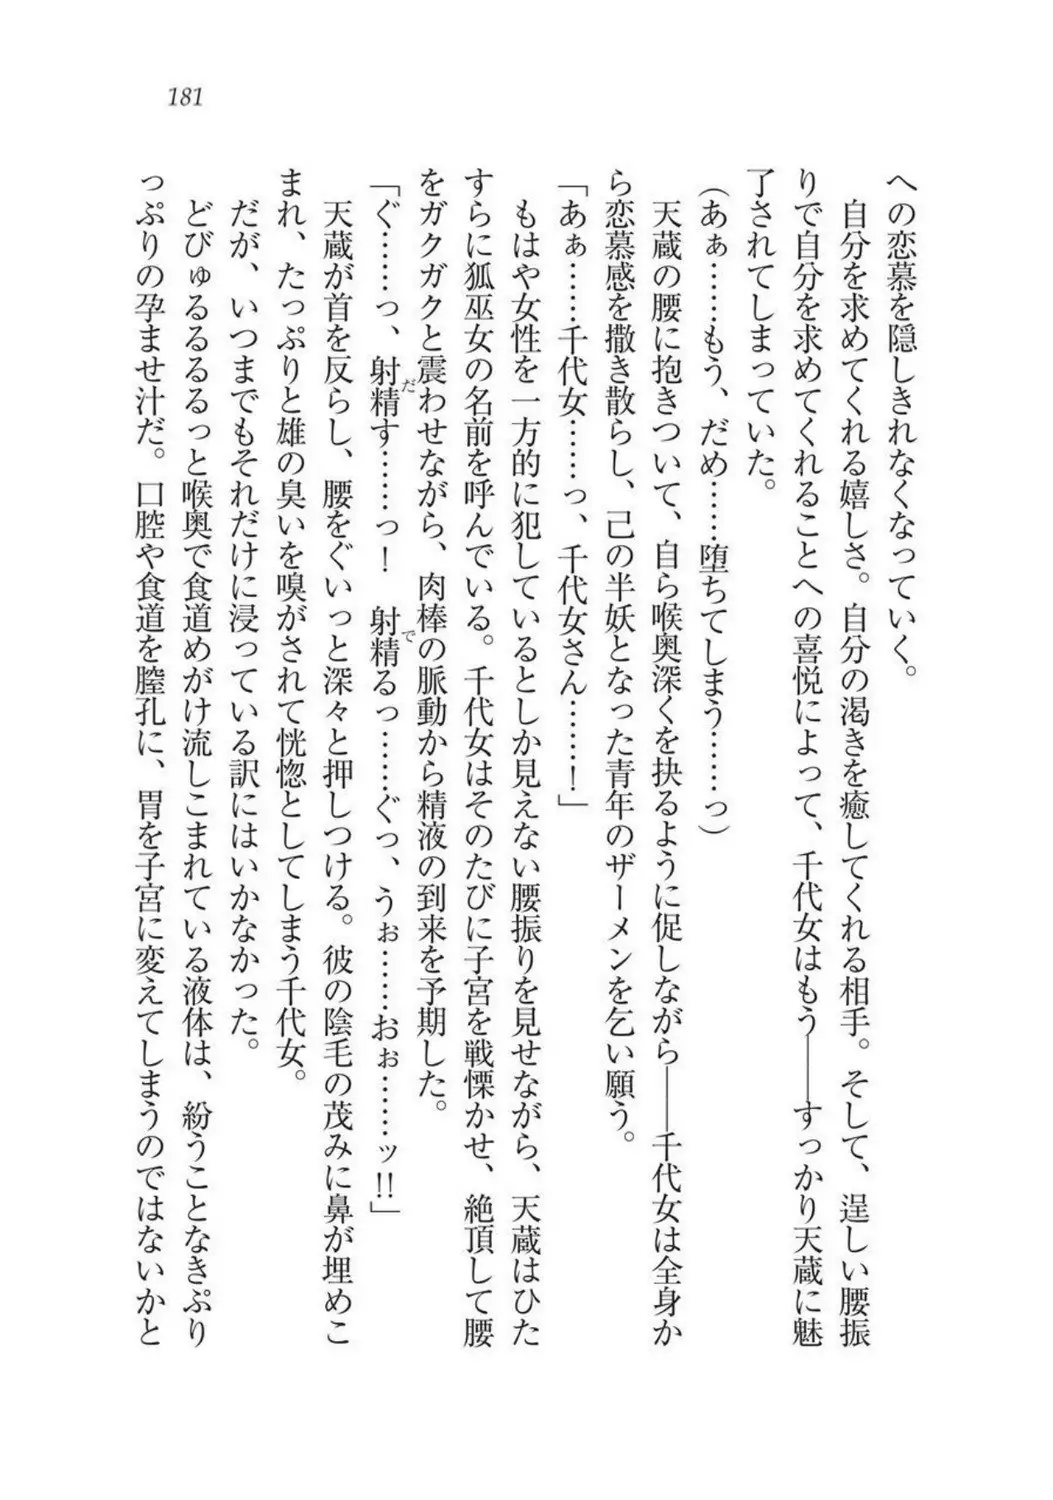 181
への恋慕を隠しきれなくなっていく。
自分を求めてくれる嬉しさ。自分の渇きを癒してくれる相手。そして、逞しい腰振
りで自分を求めてくれることへの喜悦によって、千代女はもう――すっかり天蔵に魅
了されてしまっていた。
（あぁ……もう、だめ……堕ちてしまう……っ）
天蔵の腰に抱きついて、自ら喉奥深くを抉るように促しながら――千代女は全身か
ら恋慕感を撒き散らし、己の半妖となった青年のザーメンを乞い願う。
「あぁ……千代女……っ、千代女さん……！」
もはや女性を一方的に犯しているとしか見えない腰振りを見せながら、天蔵はひた
すらに狐巫女の名前を呼んでいる。千代女はそのたびに子宮を戦慄かせ、絶頂して腰
をガクガクと震わせながら、肉棒の脈動から精液の到来を予期した。
「ぐ……っ、射精す……っ！　射精るっ……ぐっ、うぉ……おぉ……ッ!!」
だ
で
天蔵が首を反らし、腰をぐいっと深々と押しつける。彼の陰毛の茂みに鼻が埋めこ
まれ、たっぷりと雄の臭いを嗅がされて恍惚としてしまう千代女。
だが、いつまでもそれだけに浸っている訳にはいかなかった。
どびゅるるるるっと喉奥で食道めがけ流しこまれている液体は、紛うことなきぷり
っぷりの孕ませ汁だ。口腔や食道を膣孔に、胃を子宮に変えてしまうのではないかと